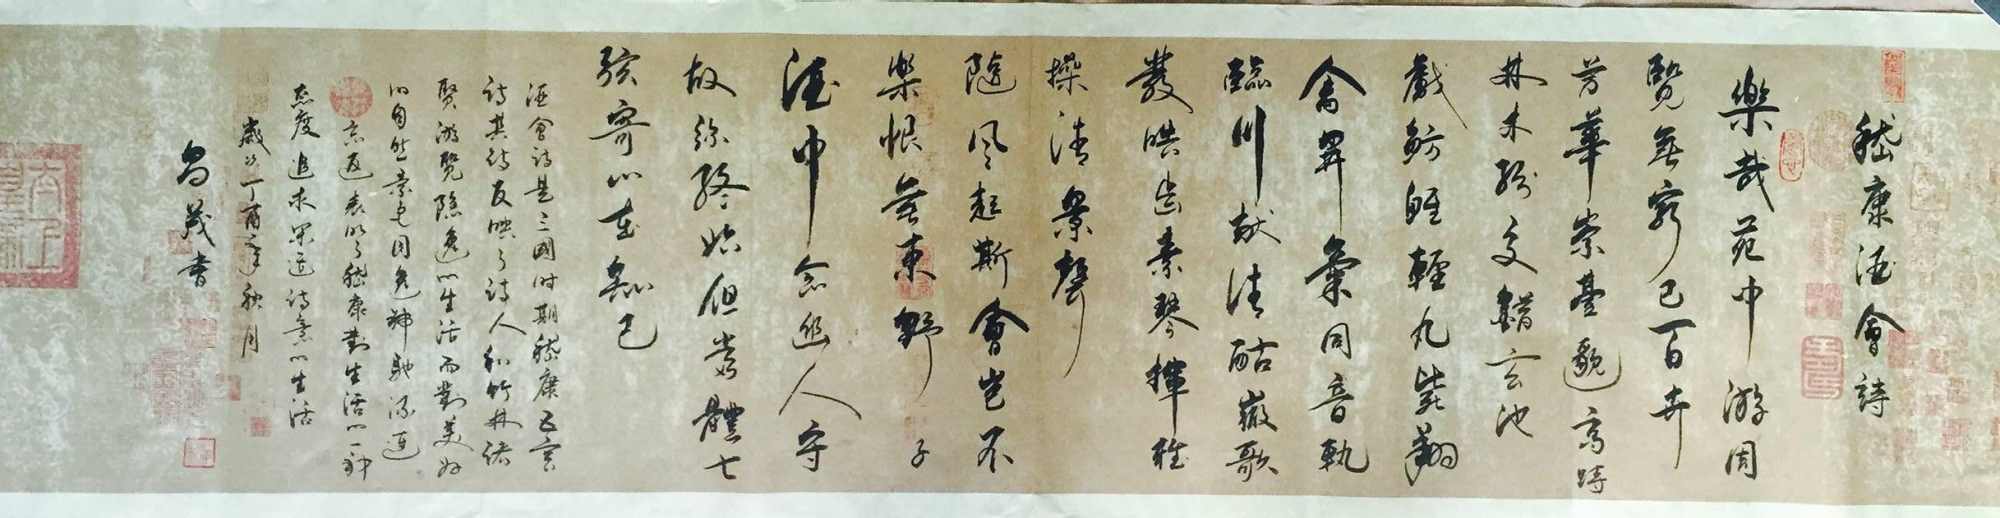 嵇康酒會詩
樂哉苑中游周
覽無窮已百卉
芳華崇臺邈高跱
林木紛交錯玄池
戲魴鯉輕丸斃翔
禽異氣同音軌
臨川献清酤微歌
發皓齒素琴揮雅
操清聲
隨風起斯會豈不
樂恨無東野子
酒中念幽人守
故弥終始但當體七
弦寄心在知己
酒會诗是三國时期嵇康五言
诗其诗反映了诗人和竹林诸
賢游覽隐逸的生活而對美好
的自然景色因逸神馳流連
忘返表明了嵇康對生活的一种
态度追求深远诗意的生活
歲次丁酉之年秋月
書